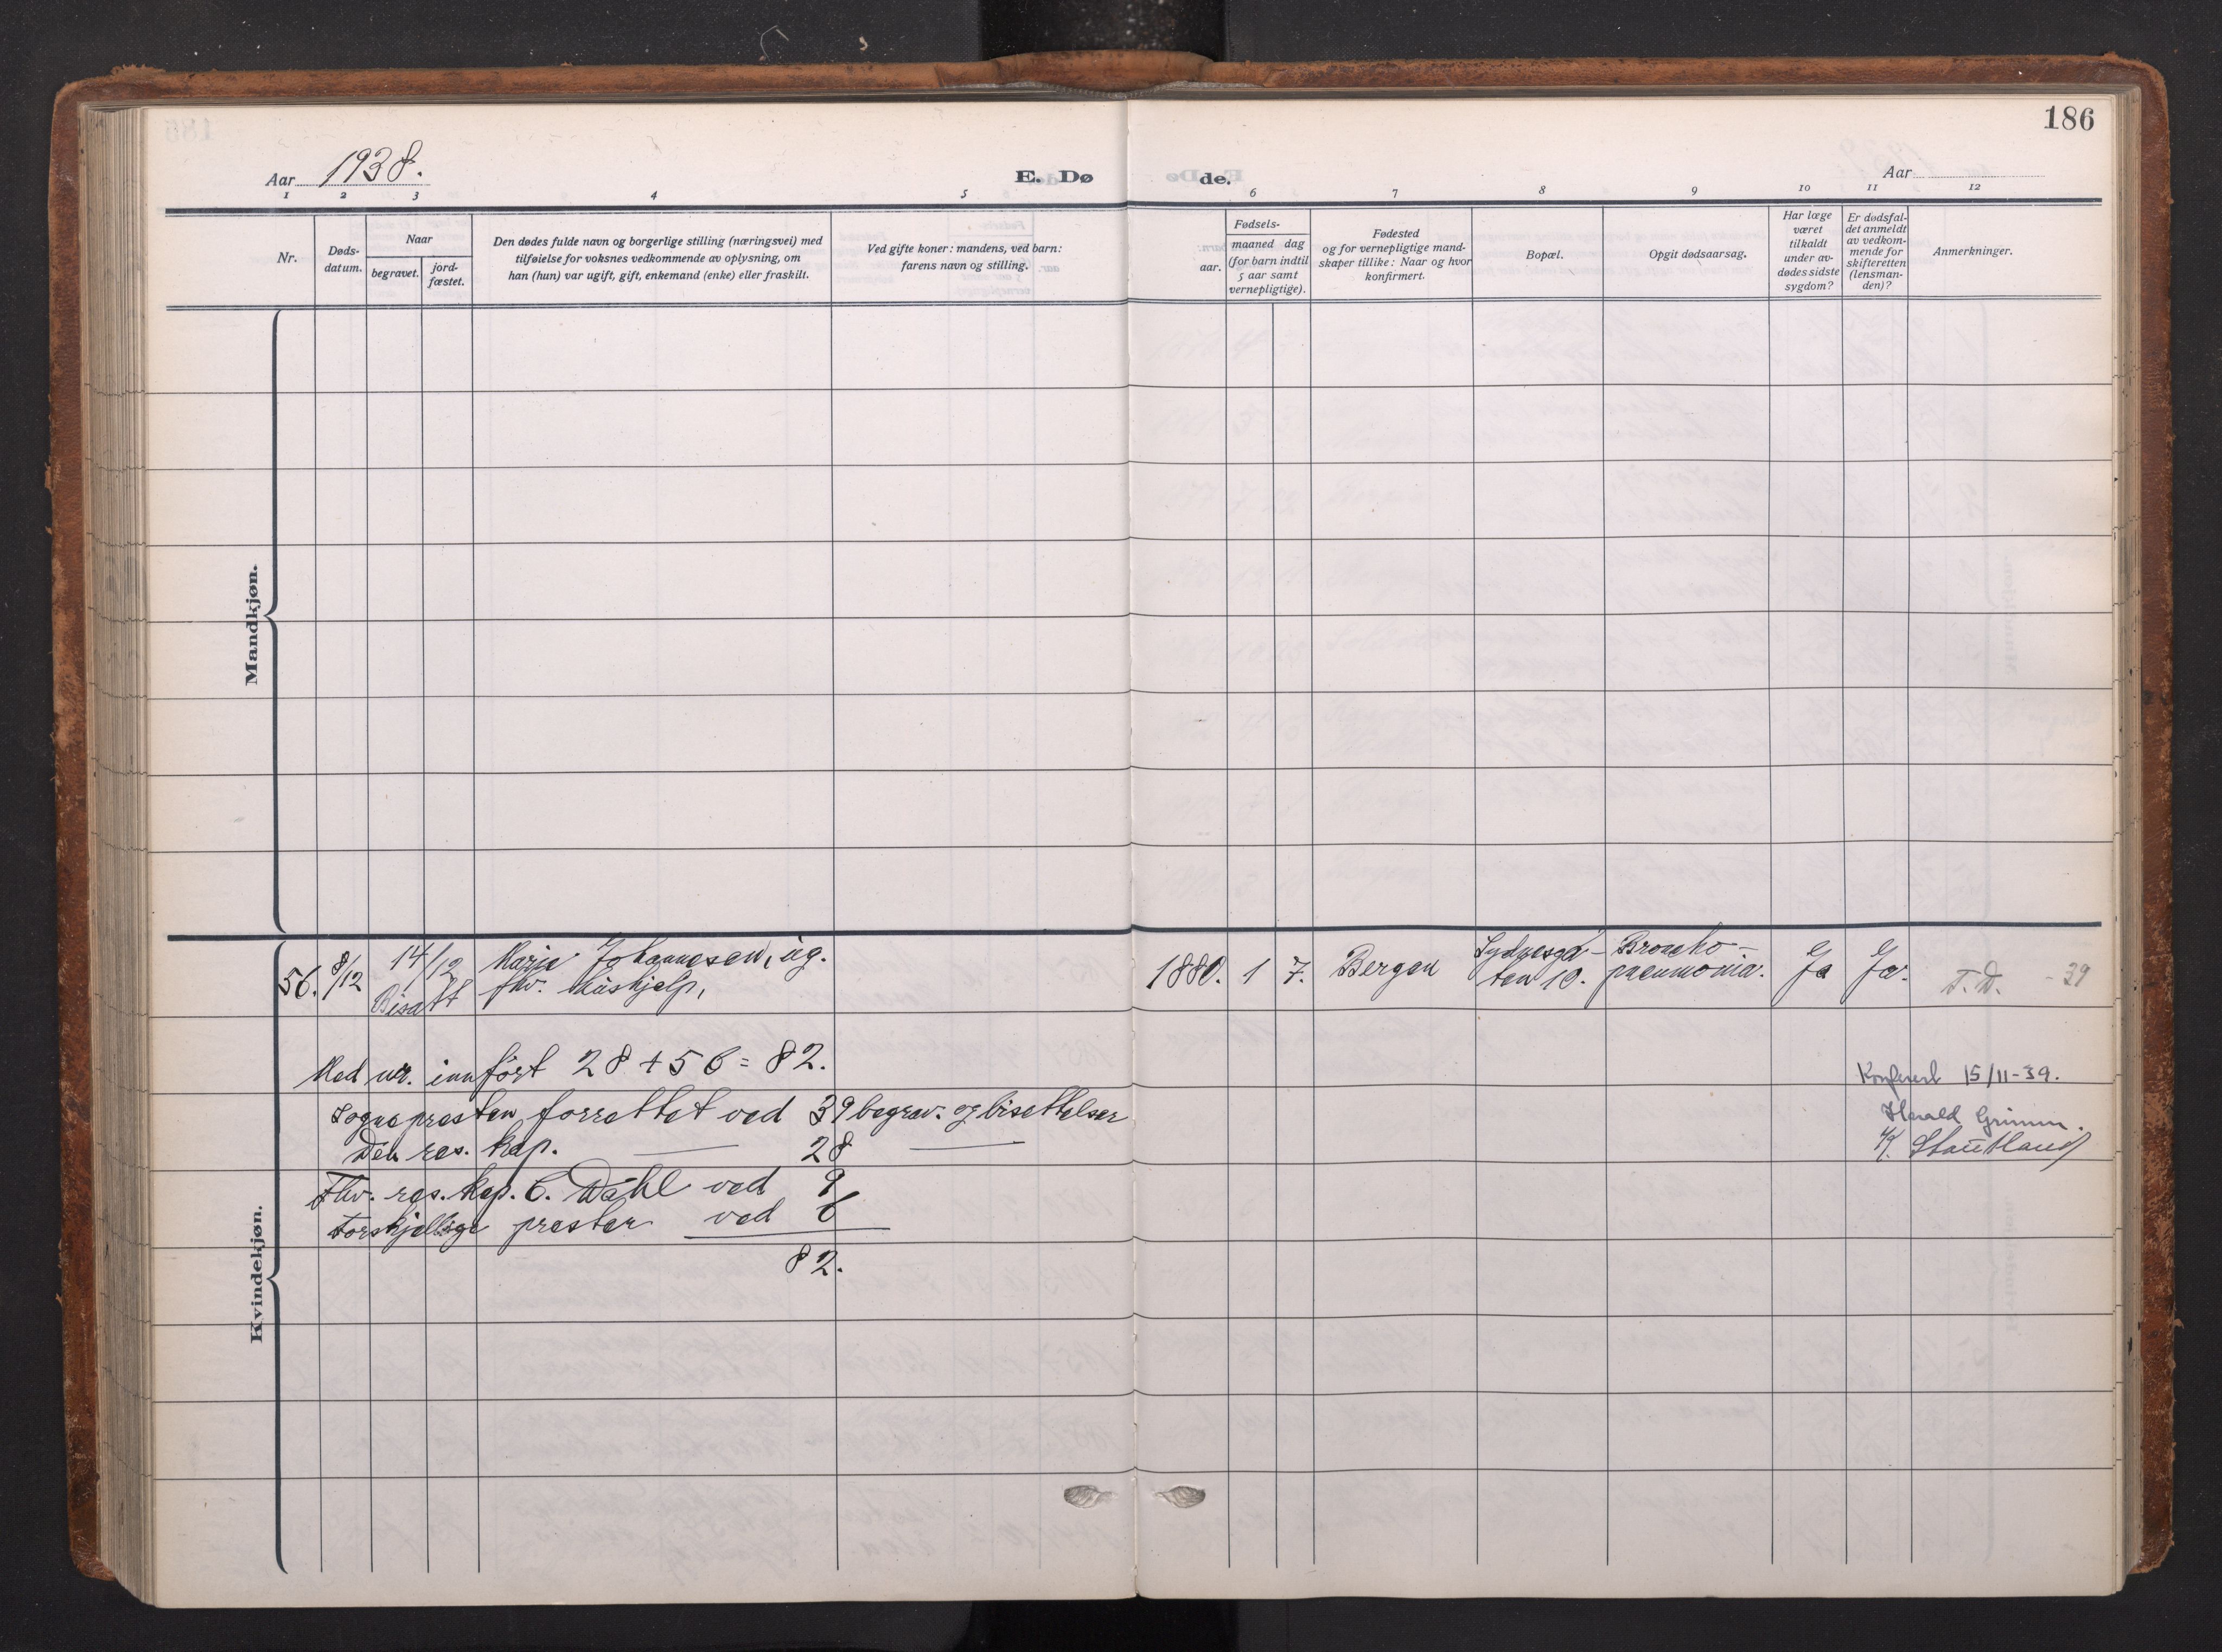 186
Aar 1938.
E. Dø
de.
Aar
1 2 3 4 5 6 7 8 9 10 11 12
Nr.
Døds-
datum.
Naar
begravet.
jord-
fæstet.
Den dødes fulde navn og borgerlige stilling (næringsvei) med
tilføielse for voksnes vedkommende av oplysning, om
han (hun) var ugift, gift, enkemand (enke) eller fraskilt.
Ved gifte koner: mandens, ved barn:
farens navn og stilling.
Fødsels-
aar.
maaned dag
(for barn indtil
5 aar samt
vernepligtige).
Fødested
og for vernepligtige mand-
skaper tillike: Naar og hvor
konfirmert.
Bopæl.
Opgit dødsaarsag.
Har læge
været
tilkaldt
under av-
dødes sidste
sygdom?
Er dødsfal-
det anmeldt
av vedkom-
mende for
skifteretten
(lensman-
den)?
Anmerkninger.
Mandkjøn.
Kvindekjøn.
56. 8/12 14/12
Bisatt
Marie Johannesen, ug.
fhv. hushjelp,
1880. 1 7. Bergen
Sydnesga-
ten 10.
Broncho-
pneumonia.
Ja Ja. T.D. - 39
Med nr. innført 28 + 56 = 82.
Sognepresten forrettet ved 39 begrav. og bisettelser
Den res. kap. — 28 —
Fhv. res. kap. C. Dahl ved 9
Forskjellige prester ved 6
82.
Konferert 15/11-39.
Harald Grimm.